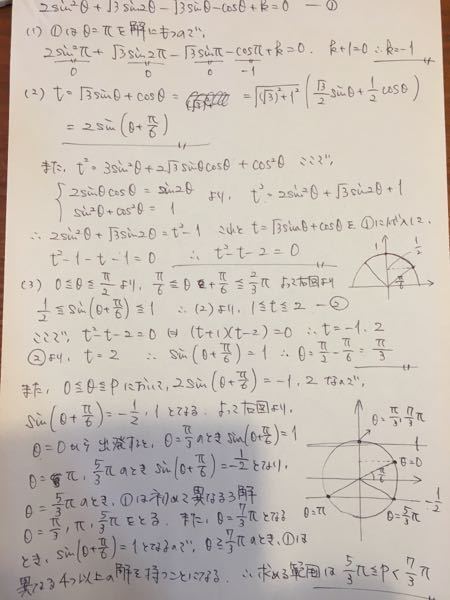 2sin²θ+√3sin2θ-√3sinθ-cosθ+k=0 ―①
(1) ①はθ=πを解にもつので,
2sin²π+√3sin2π-√3sinπ-cosπ+k=0. k+1=0 ∴k=-1
0 0 0 -1
(2) t=√3sinθ+cosθ= =√(√3)²+1² (√3/2 sinθ+1/2 cosθ)
=2sin(θ+π/6)
また, t²=3sin²θ+2√3sinθcosθ+cos²θ ここで,
{2sinθcosθ=sin2θ
sin²θ+cos²θ=1 より, t²=2sin²θ+√3sin2θ+1
∴2sin²θ+√3sin2θ=t²-1 これと t=√3sinθ+cosθを①に代入して,
t²-1-t-1=0 ∴t²-t-2=0
(3) 0≦θ≦π/2 より, π/6≦θ+π/6≦2/3π よって右図より
1/2≦sin(θ+π/6)≦1 ∴(2)より, 1≦t≦2 ―②
1 1/2 π/6
ここで, t²-t-2=0 ⇔ (t+1)(t-2)=0 ∴t=-1, 2
②より, t=2 ∴sin(θ+π/6)=1 ∴θ=π/2-π/6=π/3
また, 0≦θ≦pにおいて, 2sin(θ+π/6)=-1, 2なので,
sin(θ+π/6)=-1/2, 1となる. よって右図より,
θ=0から出発すると, θ=π/3のときsin(θ+π/6)=1
θ=π, 5/3πのときsin(θ+π/6)=-1/2となり,
θ=5/3πのとき, ①は初めて異なる3解
θ=π/3, π, 5/3πをとる. また, θ=7/3πとなる
とき, sin(θ+π/6)=1となるので, θ≧7/3πのとき, ①は
異なる4つ以上の解を持つことになる. ∴求める範囲は 5/3π≦p<7/3π
θ=π/3, 7/3π
1
θ=0
π/6
-1/2
θ=π
θ=5/3π